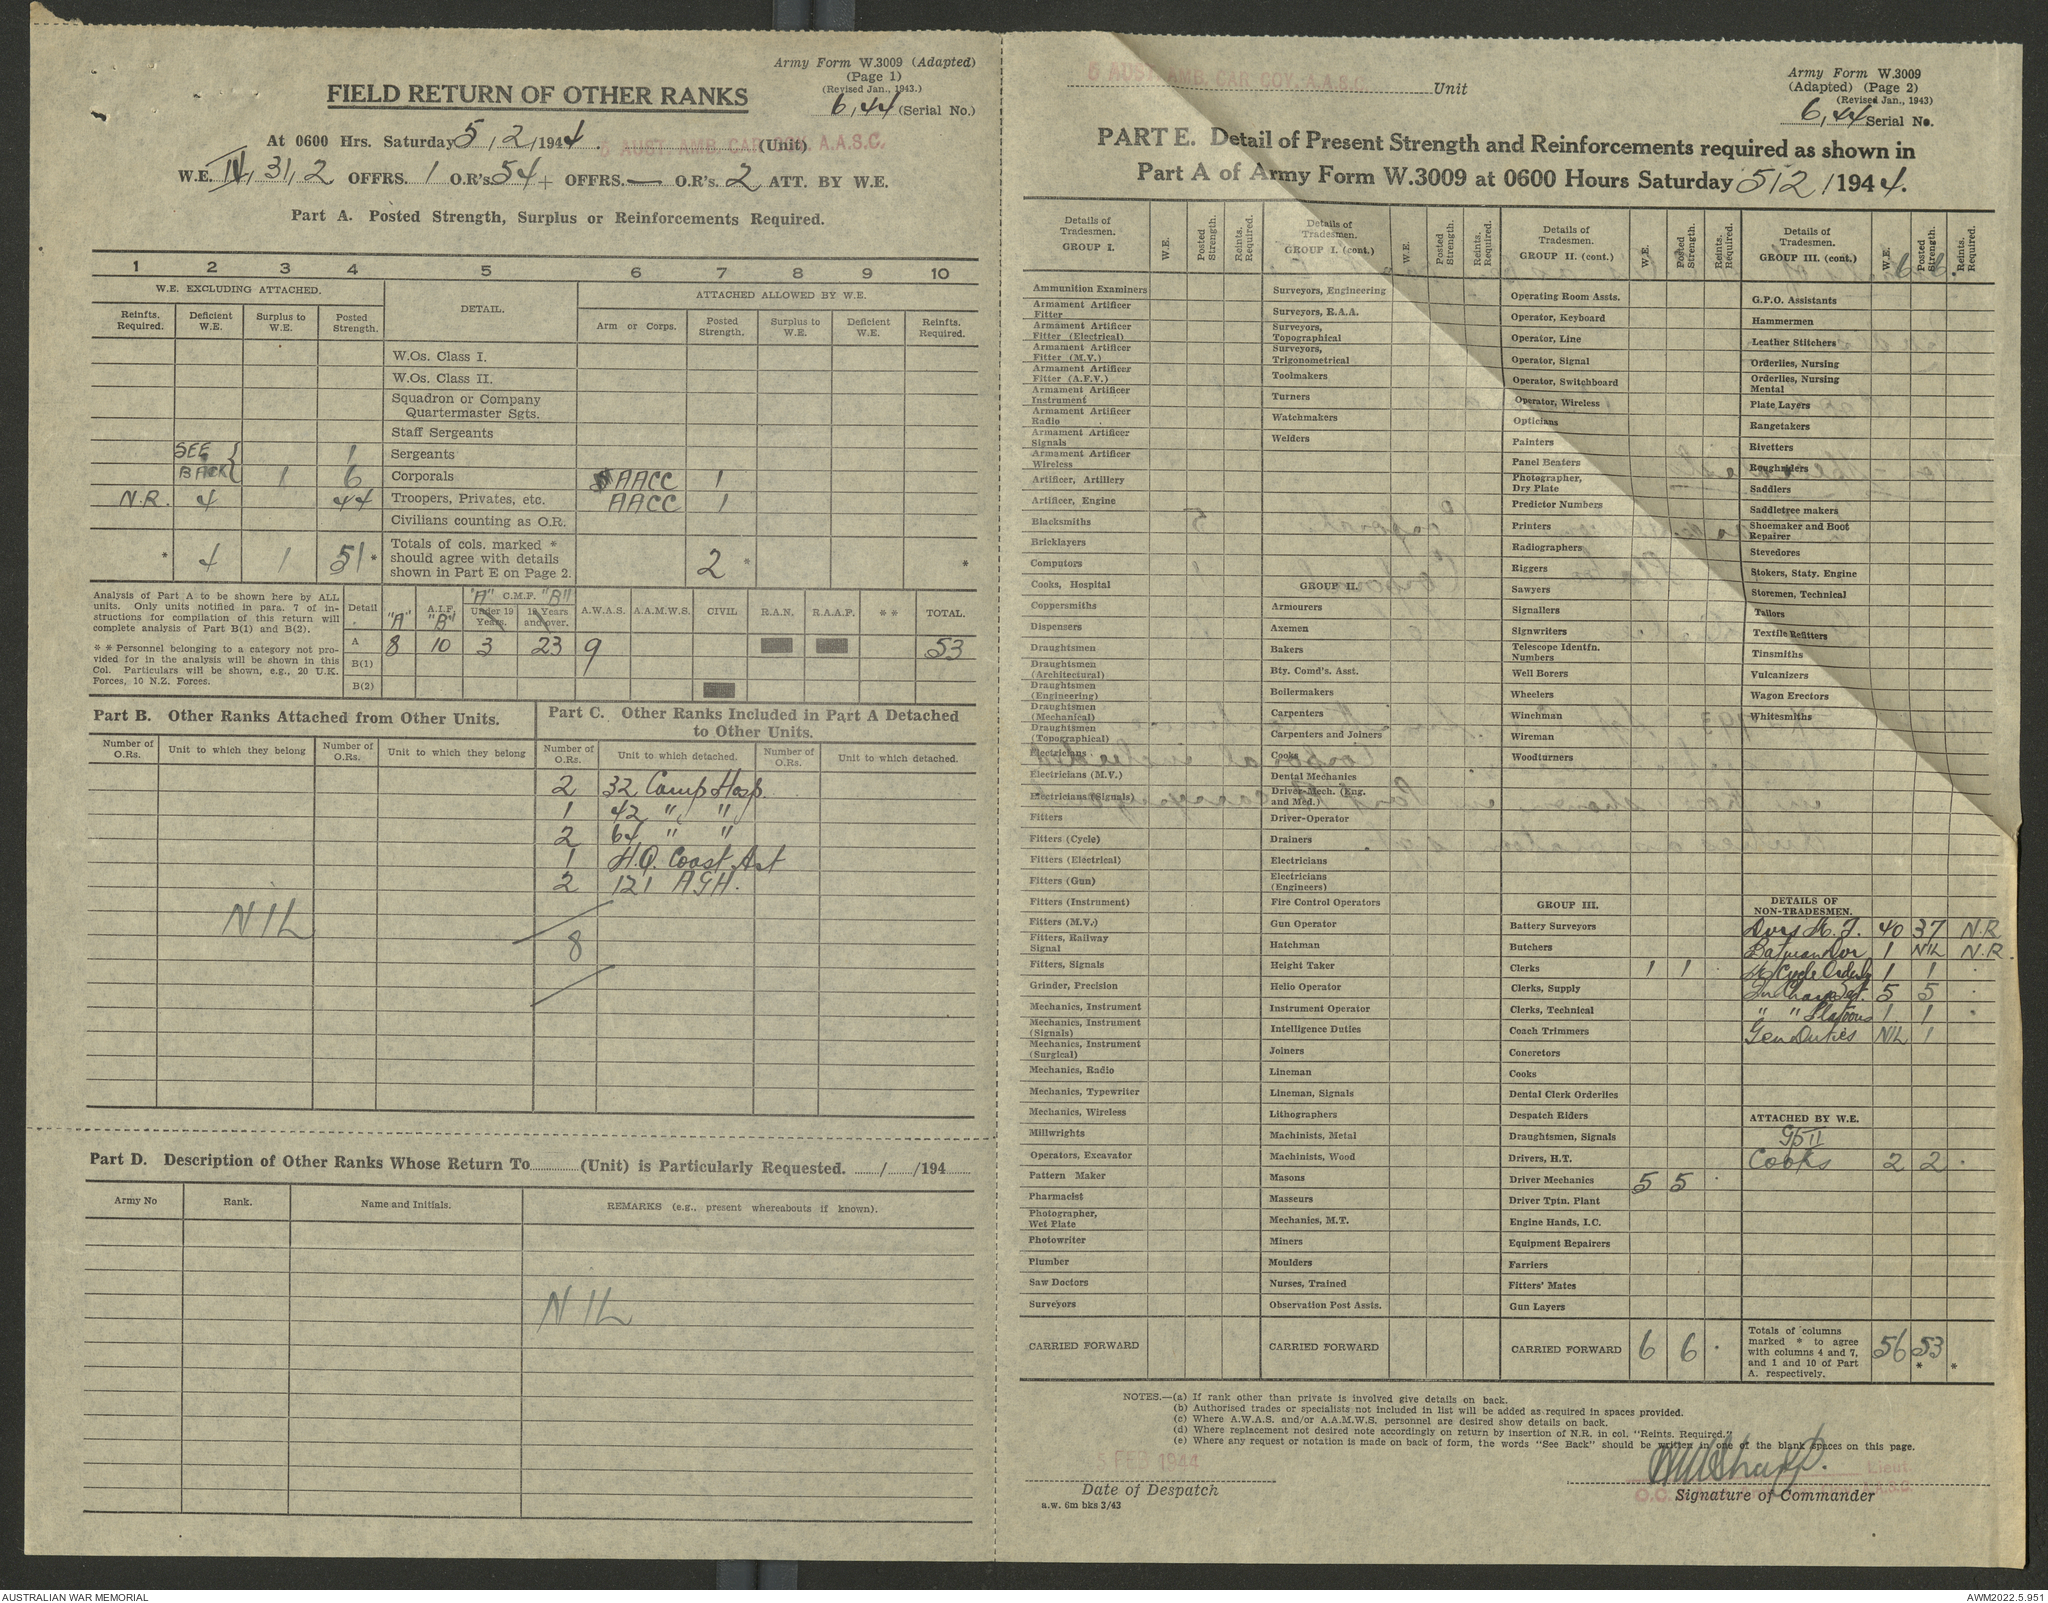 Army Form W.3009 (Adapted)
(Page 1)
(Revised Jan., 1943.)
6,44 (Serial No.)
FIELD RETURN OF OTHER RANKS
At 0600 Hrs. Saturday 5/2/1944. 5 AUST AMB. CAR COY. A.A.S.C. (Unit)
W.E. IV, 31, 2 OFFRS. 1 O.R's. 54 + OFFRS. — O.R's. 2 ATT. BY W.E.
Part A. Posted Strength, Surplus or Reinforcements Required.
1 2 3 4 5 6 7 8 9 10
W.E. EXCLUDING ATTACHED. DETAIL. ATTACHED ALLOWED BY W.E.
Reinfts. Required. Deficient W.E. Surplus to W.E. Posted Strength. Arm or Corps. Posted Strength. Surplus to W.E. Deficient W.E. Reinfts. Required.
W.Os. Class I.
W.Os. Class II.
Squadron or Company
Quartermaster Sgts.
Staff Sergeants
SEE 1 Sergeants
BACK 1 6 Corporals AACC 1
N.R. 4 44 Troopers, Privates, etc. AACC 1
Civilians counting as O.R.
* 4 1 51 * Totals of cols. marked * should agree with details shown in Part E on Page 2. 2 * *
Analysis of Part A to be shown here by ALL units. Only units notified in para. 7 of instructions for compilation of this return will complete analysis of Part B(1) and B(2).
* * Personnel belonging to a category not provided for in the analysis will be shown in this Col. Particulars will be shown, e.g., 20 U.K. Forces, 10 N.Z. Forces.
Detail "A" A.I.F. "B" "A" C.M.F. "B" Under 19 Years. 19 Years and over. A.W.A.S. A.A.M.W.S. CIVIL R.A.N. R.A.A.F. * * TOTAL.
A 8 10 3 23 9 53
B(1)
B(2)
Part B. Other Ranks Attached from Other Units.
Number of O.Rs. Unit to which they belong Number of O.Rs. Unit to which they belong
NIL
Part C. Other Ranks Included in Part A Detached
to Other Units.
Number of O.Rs. Unit to which detached. Number of O.Rs. Unit to which detached.
2 32 Camp Hosp.
1 42 " "
2 64 " "
1 H.Q. Coast Art
2 121 AGH.
8
Part D. Description of Other Ranks Whose Return To (Unit) is Particularly Requested. / /194
Army No Rank. Name and Initials. REMARKS (e.g., present whereabouts if known).
NIL
5 AUST. AMB. CAR COY. A.A.S.C. Unit
Army Form W.3009
(Adapted) (Page 2)
(Revised Jan., 1943)
6,44 Serial No.
PART E. Detail of Present Strength and Reinforcements required as shown in
Part A of Army Form W.3009 at 0600 Hours Saturday 5/2/1944.
Details of Tradesmen. GROUP I. W.E. Posted Strength. Reints. Required.
Ammunition Examiners
Armament Artificer Fitter
Armament Artificer Fitter (Electrical)
Armament Artificer Fitter (M.V.)
Armament Artificer Fitter (A.F.V.)
Armament Artificer Instrument
Armament Artificer Radio
Armament Artificer Signals
Armament Artificer Wireless
Artificer, Artillery
Artificer, Engine
Blacksmiths
Bricklayers
Computors
Cooks, Hospital
Coppersmiths
Dispensers
Draughtsmen
Draughtsmen (Architectural)
Draughtsmen (Engineering)
Draughtsmen (Mechanical)
Draughtsmen (Topographical)
Electricians
Electricians (M.V.)
Electricians (Signals)
Fitters
Fitters (Cycle)
Fitters (Electrical)
Fitters (Gun)
Fitters (Instrument)
Fitters (M.V.)
Fitters, Railway Signal
Fitters, Signals
Grinder, Precision
Mechanics, Instrument
Mechanics, Instrument (Signals)
Mechanics, Instrument (Surgical)
Mechanics, Radio
Mechanics, Typewriter
Mechanics, Wireless
Millwrights
Operators, Excavator
Pattern Maker
Pharmacist
Photographer, Wet Plate
Photowriter
Plumber
Saw Doctors
Surveyors
CARRIED FORWARD
Details of Tradesmen. GROUP I. (cont.) W.E. Posted Strength. Reints. Required.
Surveyors, Engineering
Surveyors, R.A.A.
Surveyors, Topographical
Surveyors, Trigonometrical
Toolmakers
Turners
Watchmakers
Welders
GROUP II.
Armourers
Axemen
Bakers
Bty. Comd's. Asst.
Boilermakers
Carpenters
Carpenters and Joiners
Cooks
Dental Mechanics
Driver-Mech. (Eng. and Med.)
Driver-Operator
Drainers
Electricians
Electricians (Engineers)
Fire Control Operators
Gun Operator
Hatchman
Height Taker
Helio Operator
Instrument Operator
Intelligence Duties
Joiners
Lineman
Lineman, Signals
Lithographers
Machinists, Metal
Machinists, Wood
Masons
Masseurs
Mechanics, M.T.
Miners
Moulders
Nurses, Trained
Observation Post Assts.
CARRIED FORWARD
Details of Tradesmen. GROUP II. (cont.) W.E. Posted Strength. Reints. Required.
Operating Room Assts.
Operator, Keyboard
Operator, Line
Operator, Signal
Operator, Switchboard
Operator, Wireless
Opticians
Painters
Panel Beaters
Photographer, Dry Plate
Predictor Numbers
Printers
Radiographers
Riggers
Sawyers
Signallers
Signwriters
Telescope Identfn. Numbers
Well Borers
Wheelers
Winchman
Wireman
Woodturners
GROUP III.
Battery Surveyors
Butchers
Clerks 1 1
Clerks, Supply
Clerks, Technical
Coach Trimmers
Concretors
Cooks
Dental Clerk Orderlies
Despatch Riders
Draughtsmen, Signals
Drivers, H.T.
Driver Mechanics 5 5
Driver Tptn. Plant
Engine Hands, I.C.
Equipment Repairers
Farriers
Fitters' Mates
Gun Layers
CARRIED FORWARD 6 6
Details of Tradesmen. GROUP III. (cont) W.E. Posted Strength. Reints. Required.
6 6
G.P.O. Assistants
Hammermen
Leather Stitchers
Orderlies, Nursing
Orderlies, Nursing Mental
Plate Layers
Rangetakers
Rivetters
Roughriders
Saddlers
Saddletree makers
Shoemaker and Boot Repairer
Stevedores
Stokers, Staty. Engine
Storemen, Technical
Tailors
Textile Refitters
Tinsmiths
Vulcanizers
Wagon Erectors
Whitesmiths
DETAILS OF NON-TRADESMEN.
Dvrs M.T. 40 37 N.R.
Batman Dvr 1 NIL N.R.
M/Cycle Orderly 1 1
In Charge Sect. 5 5
" " Platoons 1 1
Gen Duties NIL 1
ATTACHED BY W.E.
Gp II
Cooks 2 2
Totals of columns marked * to agree with columns 4 and 7, and 1 and 10 of Part A. respectively. 56 53 * *
NOTES.—(a) If rank other than private is involved give details on back.
(b) Authorised trades or specialists not included in list will be added as required in spaces provided.
(c) Where A.W.A.S. and/or A.A.M.W.S. personnel are desired show details on back.
(d) Where replacement not desired note accordingly on return by insertion of N.R. in col. "Reints. Required."
(e) Where any request or notation is made on back of form, the words "See Back" should be written in one of the blank spaces on this page.
5 FEB 1944
Lieut.
Date of Despatch
Signature of Commander
a.w. 6m bks 3/43
AUSTRALIAN WAR MEMORIAL
AWM2022.5.951